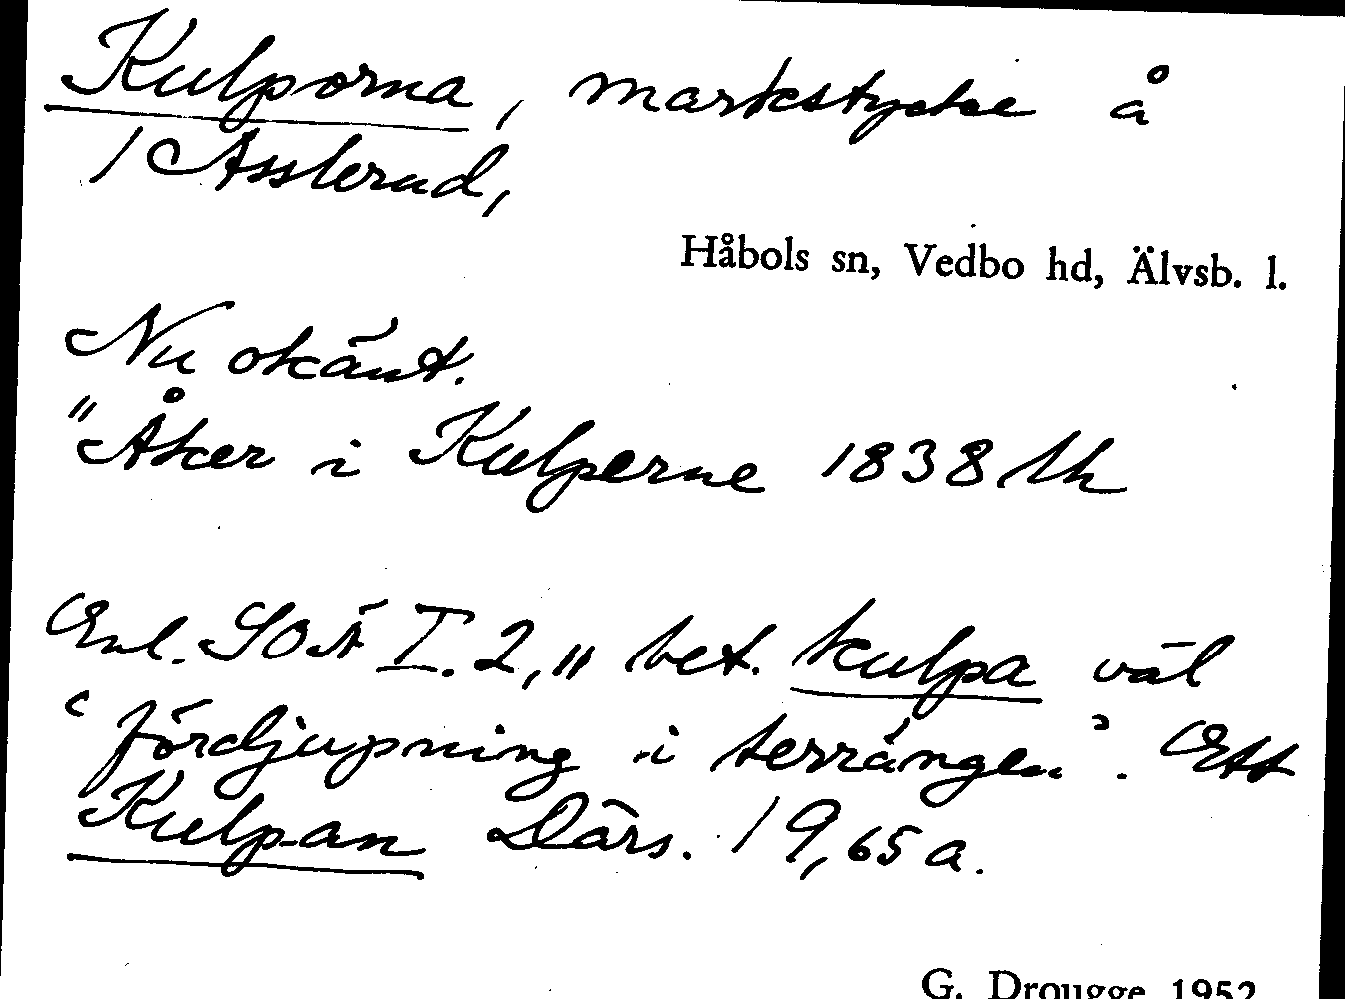 Kulporna, markstycke å
1 Asslerud,
Håbols sn, Vedbo hd, Älvsb. l.
Nu okänt.
"Åker i Kulperne 1838 lh
Enl. SOÄ I. 2,11 bet. kulpa väl
‘fördjupning i terrängen’. Ett
Kulpan Därs. 19,65 a.
G. Drougge 1952